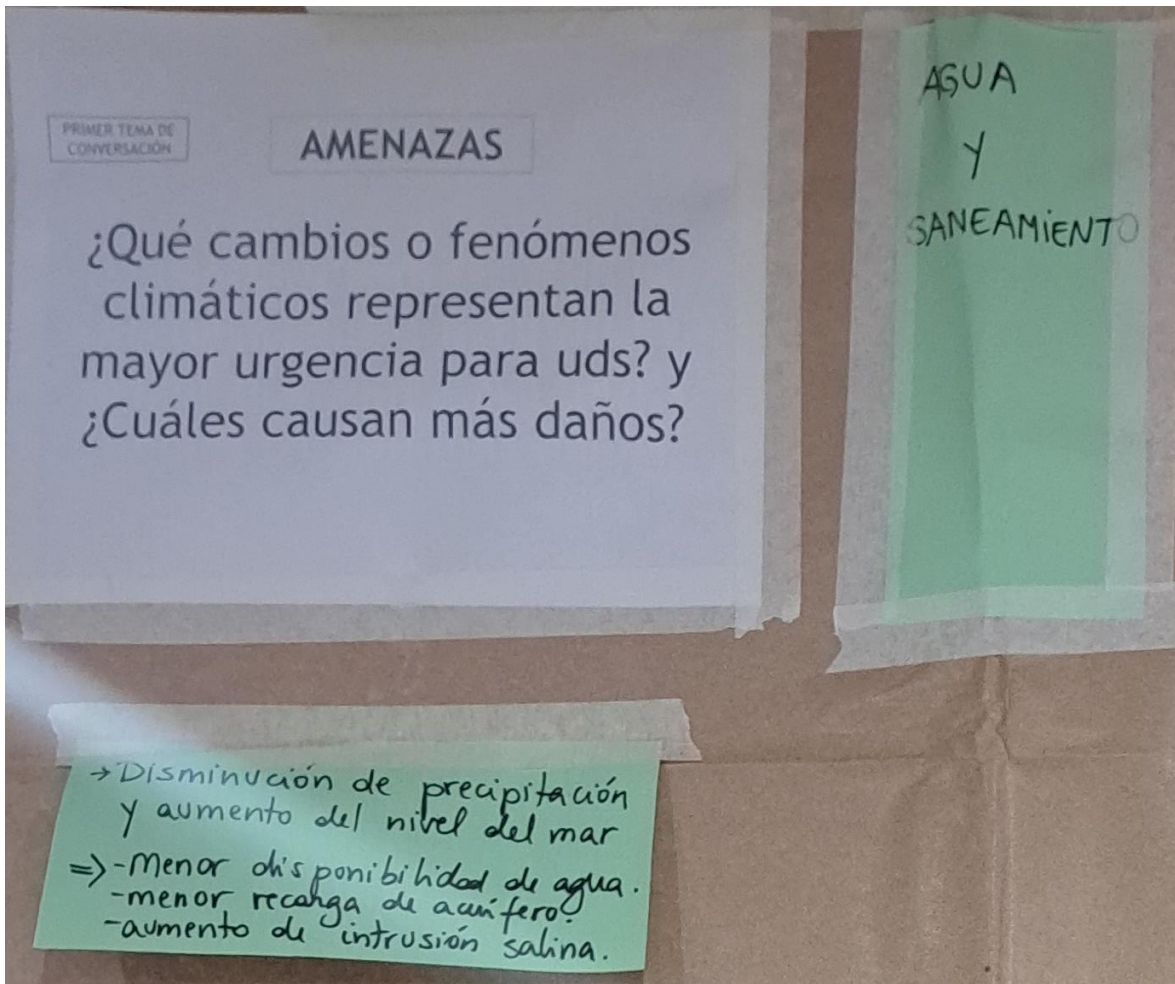 PRIMER TEMA DE
CONVERSACIÓN
AMENAZAS
¿Qué cambios o fenómenos
climáticos representan la
mayor urgencia para uds? y
¿Cuáles causan más daños?
AGUA
Y
SANEAMiENTO
→ Disminución de precipitación
y aumento del nivel del mar
=> - Menor disponibilidad de agua.
- menor recarga de acuífero.
- aumento de intrusión salina.